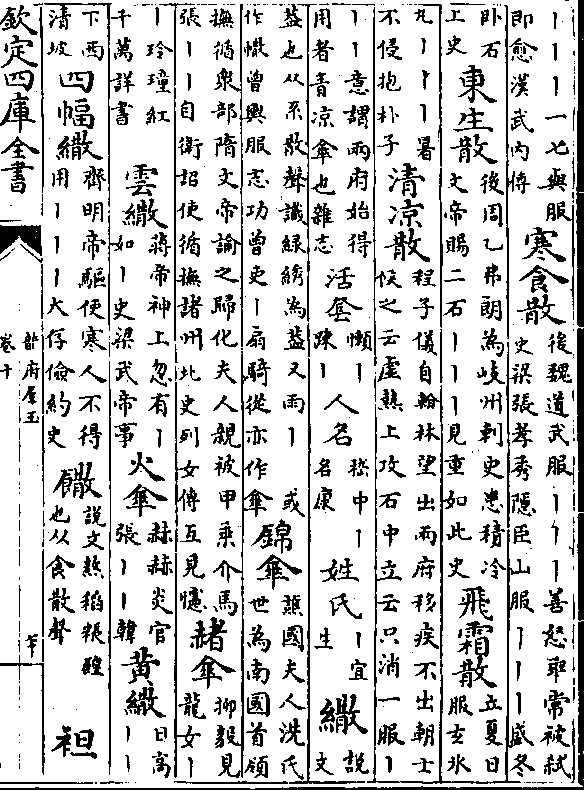 丨丨丨一七與服即愈漢武内傳 寒食散 後魏道武服丨丨丨善怒取常被弑史梁張孝秀隱匡山服丨丨丨盛冬
卧石上史 東生散 後周乙弗朗為岐州刺史患積冷文帝賜二石丨丨丨見重如此史 飛霜散 立夏日服玄冰
丸丨丨丨暑不侵抱朴子 清凉散 程子儀自翰林望出兩府移疾不出朝士候之云虚熱上攻石中立云只消一服丨
丨丨意謂兩府始得用者青凉傘也雜志 活套 懶丨疎丨 人名 嵇中丨名康 姓氏 丨宜生 繖 說文
蓋也从系散聲識緑綉為蓋又雨丨或作幟曾輿服志功曾吏丨扇騎從亦作傘 錦傘 譙國夫人洗氏世為南國首領
撫循衆部隋文帝諭之歸化夫人親被甲乘介馬張丨丨自衛詔使循撫諸州北史列女傳互見幰 赭傘 柳毅見龍女丨
丨玲瓏紅千萬詳書 雲繖 蔣帝神上忽有丨如丨史梁武帝事 火傘 赫赫炎官張丨丨韓 黄繖 日高丨丨
下西清坡 四幅繖 齊明帝驅使寒人不得用丨丨丨大存儉約史 饊 說文熬稻粻也从食散聲 袒
欽定四庫全書
韻府羣玉
卷十